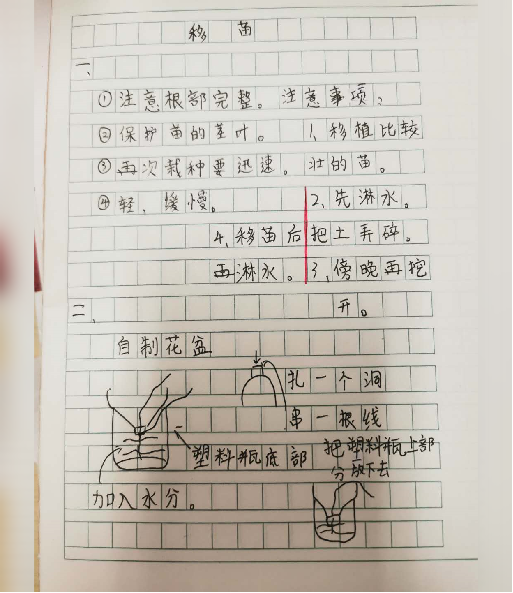 移苗
一、
①注意根部完整。 注意事项:
②保护苗的茎叶。 1、移植比较
③再次栽种要迅速。壮的苗。
④轻、缓慢。 2、先淋水。
4、移苗后把土弄碎。
再淋水。3、傍晚再挖
二、 开。
自制花盆
扎一个洞
串一根线
塑料瓶底部 把塑料瓶上部
分放下去
加入水分。